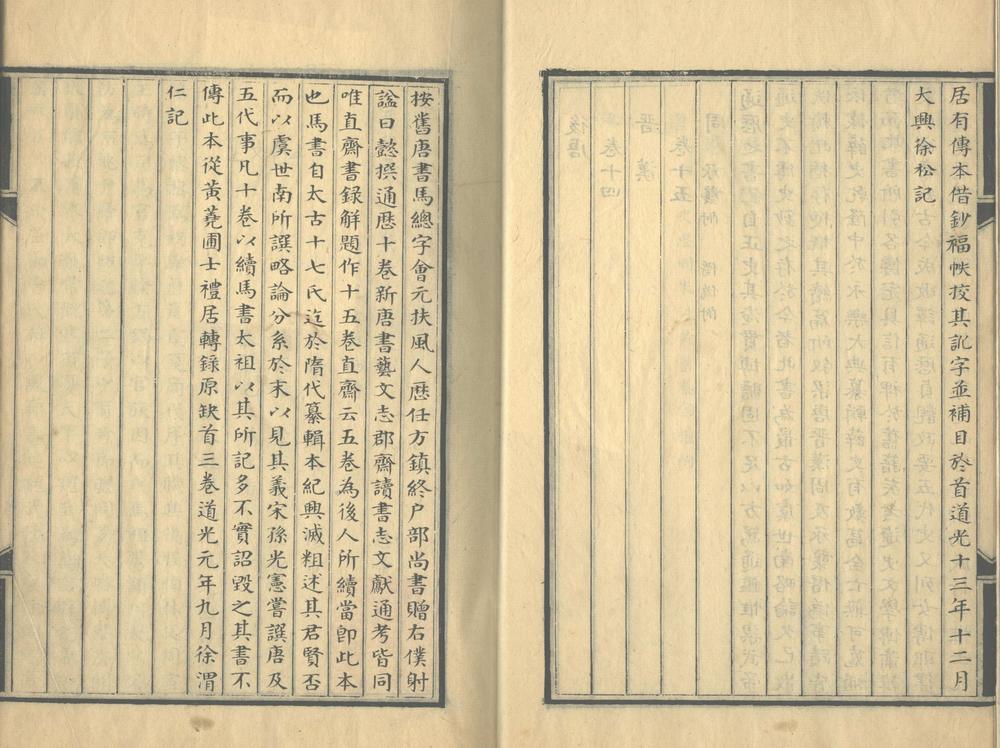 居有傳本借鈔福帙挍其訛字並補目於首道光十三年十二月
大興徐松記
按舊唐書馬總字會元扶風人歷任方鎮終户部尚書贈右僕射
諡曰懿撰通歷十卷新唐書藝文志郡齋讀書志文獻通考皆同
唯直齋書録解題作十五卷直齋云五卷為後人所續當即此本
也馬書自太古十七氏迄於隋代纂輯本紀興滅粗述其君賢否
而以虞世南所譔略論分系於末以見其義宋孫光憲嘗譔唐及
五代事凡十卷以續馬書太祖以其所記多不實詔毀之其書不
傳此本從黃蕘圃士禮居轉錄原缺首三卷道光元年九月徐渭
仁記